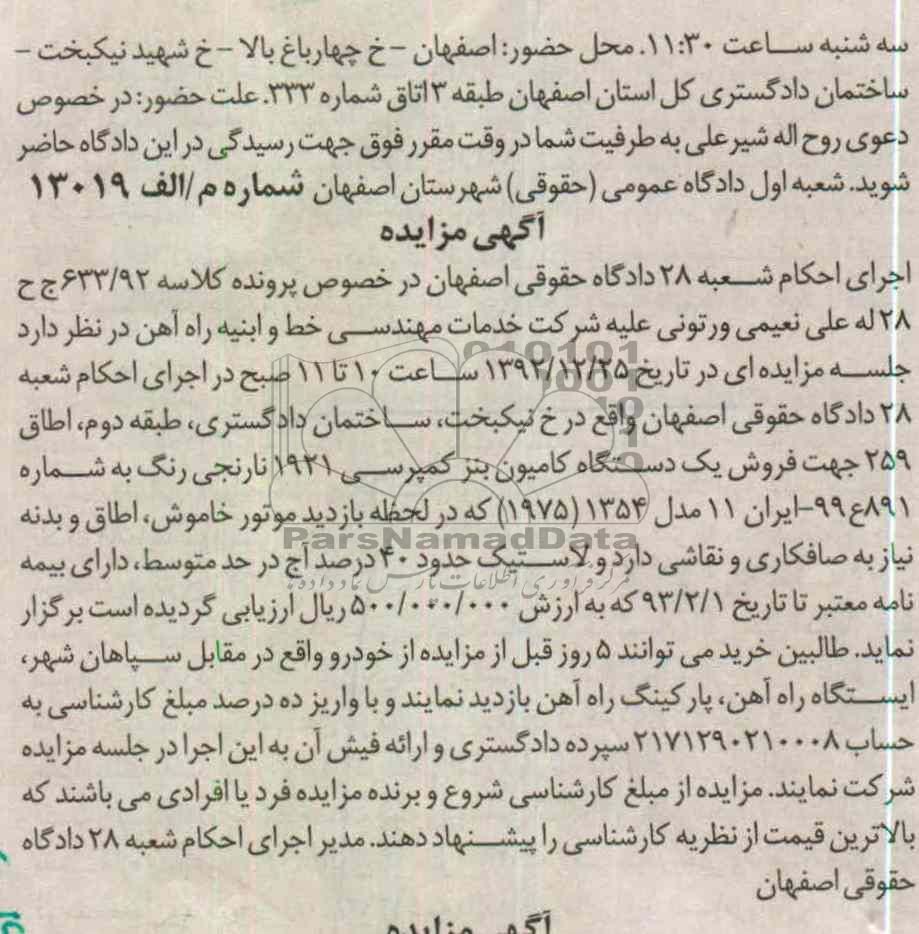 سه شنبه ساعت ۱۱:۳۰. محل حضور: اصفهان – خ چهارباغ بالا – خ شهید نیکبخت –
ساختمان دادگستری کل استان اصفهان طبقه ۳ اتاق شماره ۳۳۳. علت حضور: در خصوص
دعوی روح اله شیرعلی به طرفیت شما در وقت مقرر فوق جهت رسیدگی در این دادگاه حاضر
شوید. شعبه اول دادگاه عمومی (حقوقی) شهرستان اصفهان شماره م/الف ۱۳۰۱۹
آگهی مزایده
اجرای احکام شعبه ۲۸ دادگاه حقوقی اصفهان در خصوص پرونده کلاسه ۶۳۳/۹۲ج ح
۲۸ له علی نعیمی ورتونی علیه شرکت خدمات مهندسی خط و ابنیه راه آهن در نظر دارد
جلسه مزایده ای در تاریخ ۱۳۹۲/۱۲/۲۵ ساعت ۱۰ تا ۱۱ صبح در اجرای احکام شعبه
۲۸ دادگاه حقوقی اصفهان واقع در خ نیکبخت، ساختمان دادگستری، طبقه دوم، اطاق
۲۵۹ جهت فروش یک دستگاه کامیون بنز کمپرسی ۱۹۲۱ نارنجی رنگ به شماره
۸۹۱ع۹۹-ایران ۱۱ مدل ۱۳۵۴ (۱۹۷۵) که در لحظه بازدید موتور خاموش، اطاق و بدنه
نیاز به صافکاری و نقاشی دارد و لاستیک حدود ۴۰ درصد آج در حد متوسط، دارای بیمه
نامه معتبر تا تاریخ ۹۳/۲/۱ که به ارزش ۵۰۰/۰۰۰/۰۰۰ ریال ارزیابی گردیده است برگزار
نماید. طالبین خرید می توانند ۵ روز قبل از مزایده از خودرو واقع در مقابل سپاهان شهر،
ایستگاه راه آهن، پارکینگ راه آهن بازدید نمایند و با واریز ده درصد مبلغ کارشناسی به
حساب ۲۱۷۱۲۹۰۲۱۰۰۰۸ سپرده دادگستری و ارائه فیش آن به این اجرا در جلسه مزایده
شرکت نمایند. مزایده از مبلغ کارشناسی شروع و برنده مزایده فرد یا افرادی می باشند که
بالاترین قیمت از نظریه کارشناسی را پیشنهاد دهند. مدیر اجرای احکام شعبه ۲۸ دادگاه
حقوقی اصفهان
آگهی مزایده
ParsNamadData